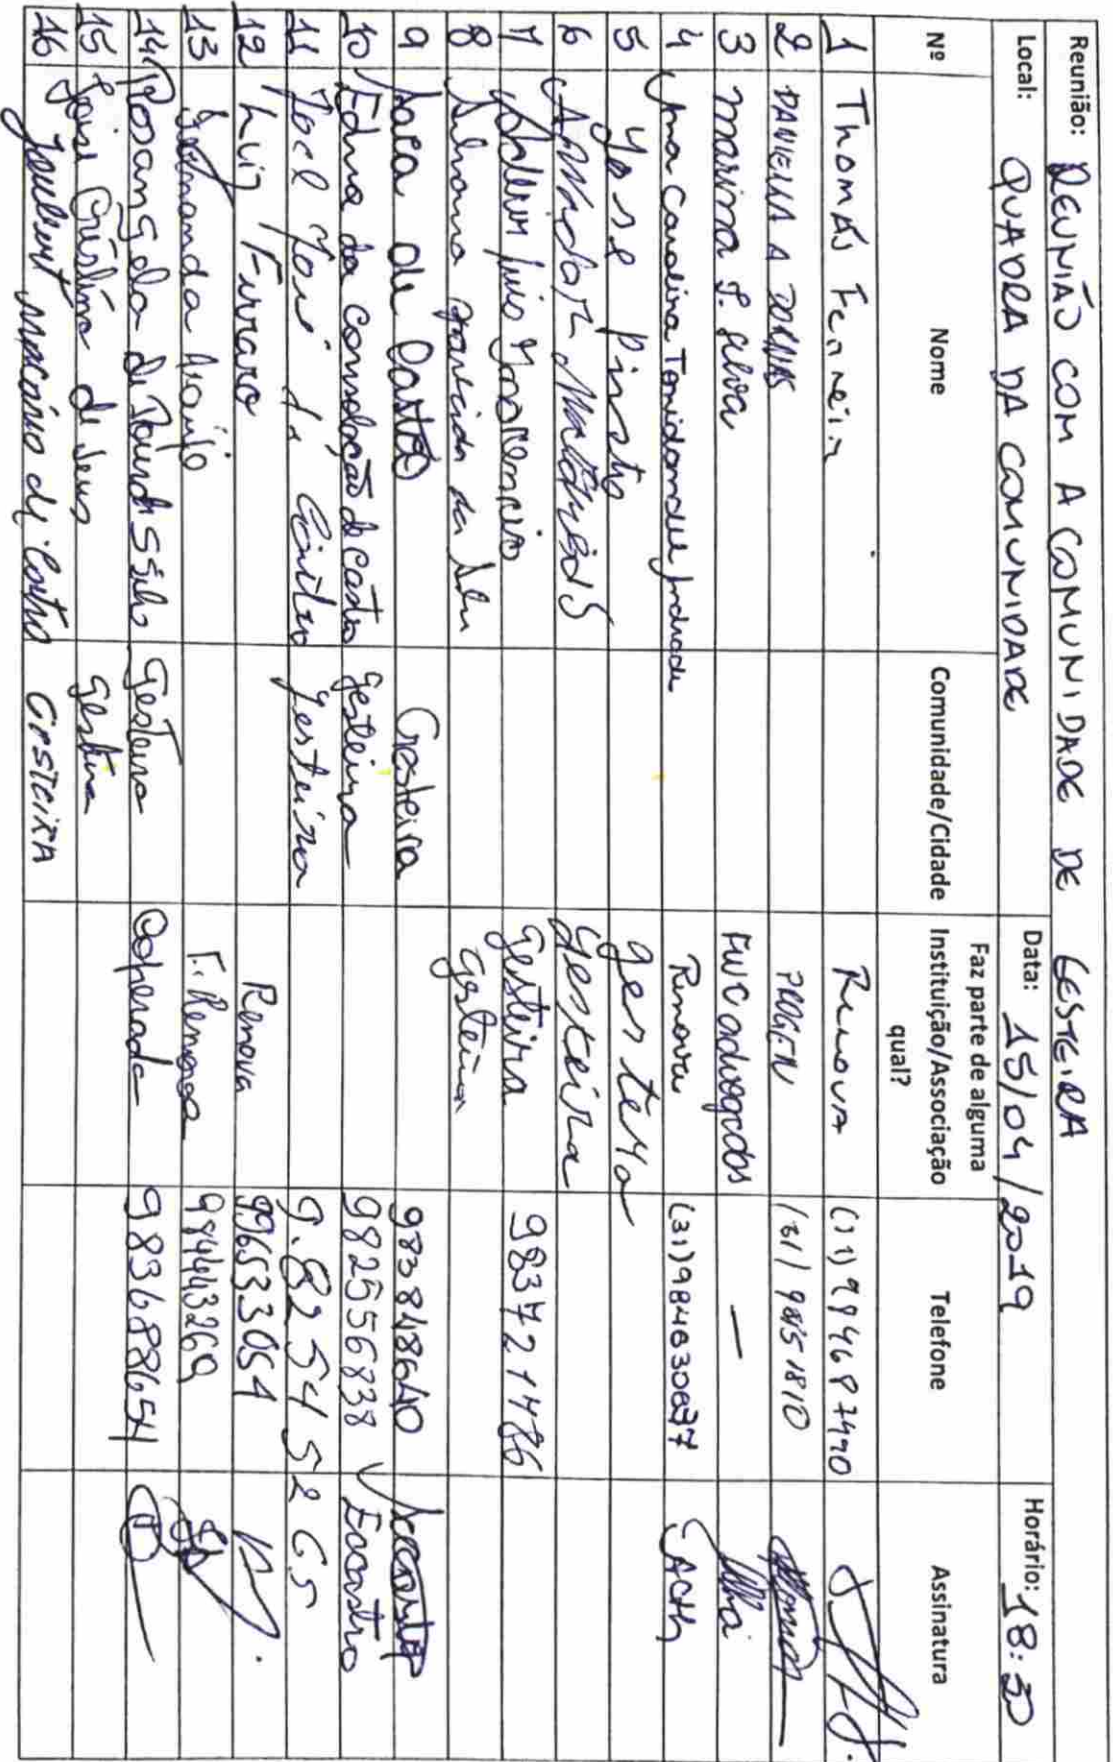 Reunião: REUNIÃO COM A COMUNIDADE DE GESTEIRA
Local: QUADRA DA COMUNIDADE Data: 15/04/2019 Horário: 18:30
Nº Nome Comunidade/Cidade Faz parte de alguma Instituição/Associação qual? Telefone Assinatura
1 Thomás Ferreira Renova
2 DANIELLA A PROGEN
3 Marina S. Silva FWC advogados —
4 Ana Carolina Renova (31)984830877
5 Yasse Pinsto gestera
6 gesteira
7 Gesteira 983721486
8 Silvana Aparecida da gesteira
9 de Castro Gesteira 983848640
10 Edna da Consolação de Castro gesteira 982556838 Ecastro
11 Joel José de Castro gesteira 9.82545265
12 Luiz Ferraro Renova 996533054
13 Fernanda Araújo F. Renova 984443269
14 Rosangela de Gesteira 983688654
15 Cristina de Jesus Gesteira
16 Macário de Castro GESTEIRA